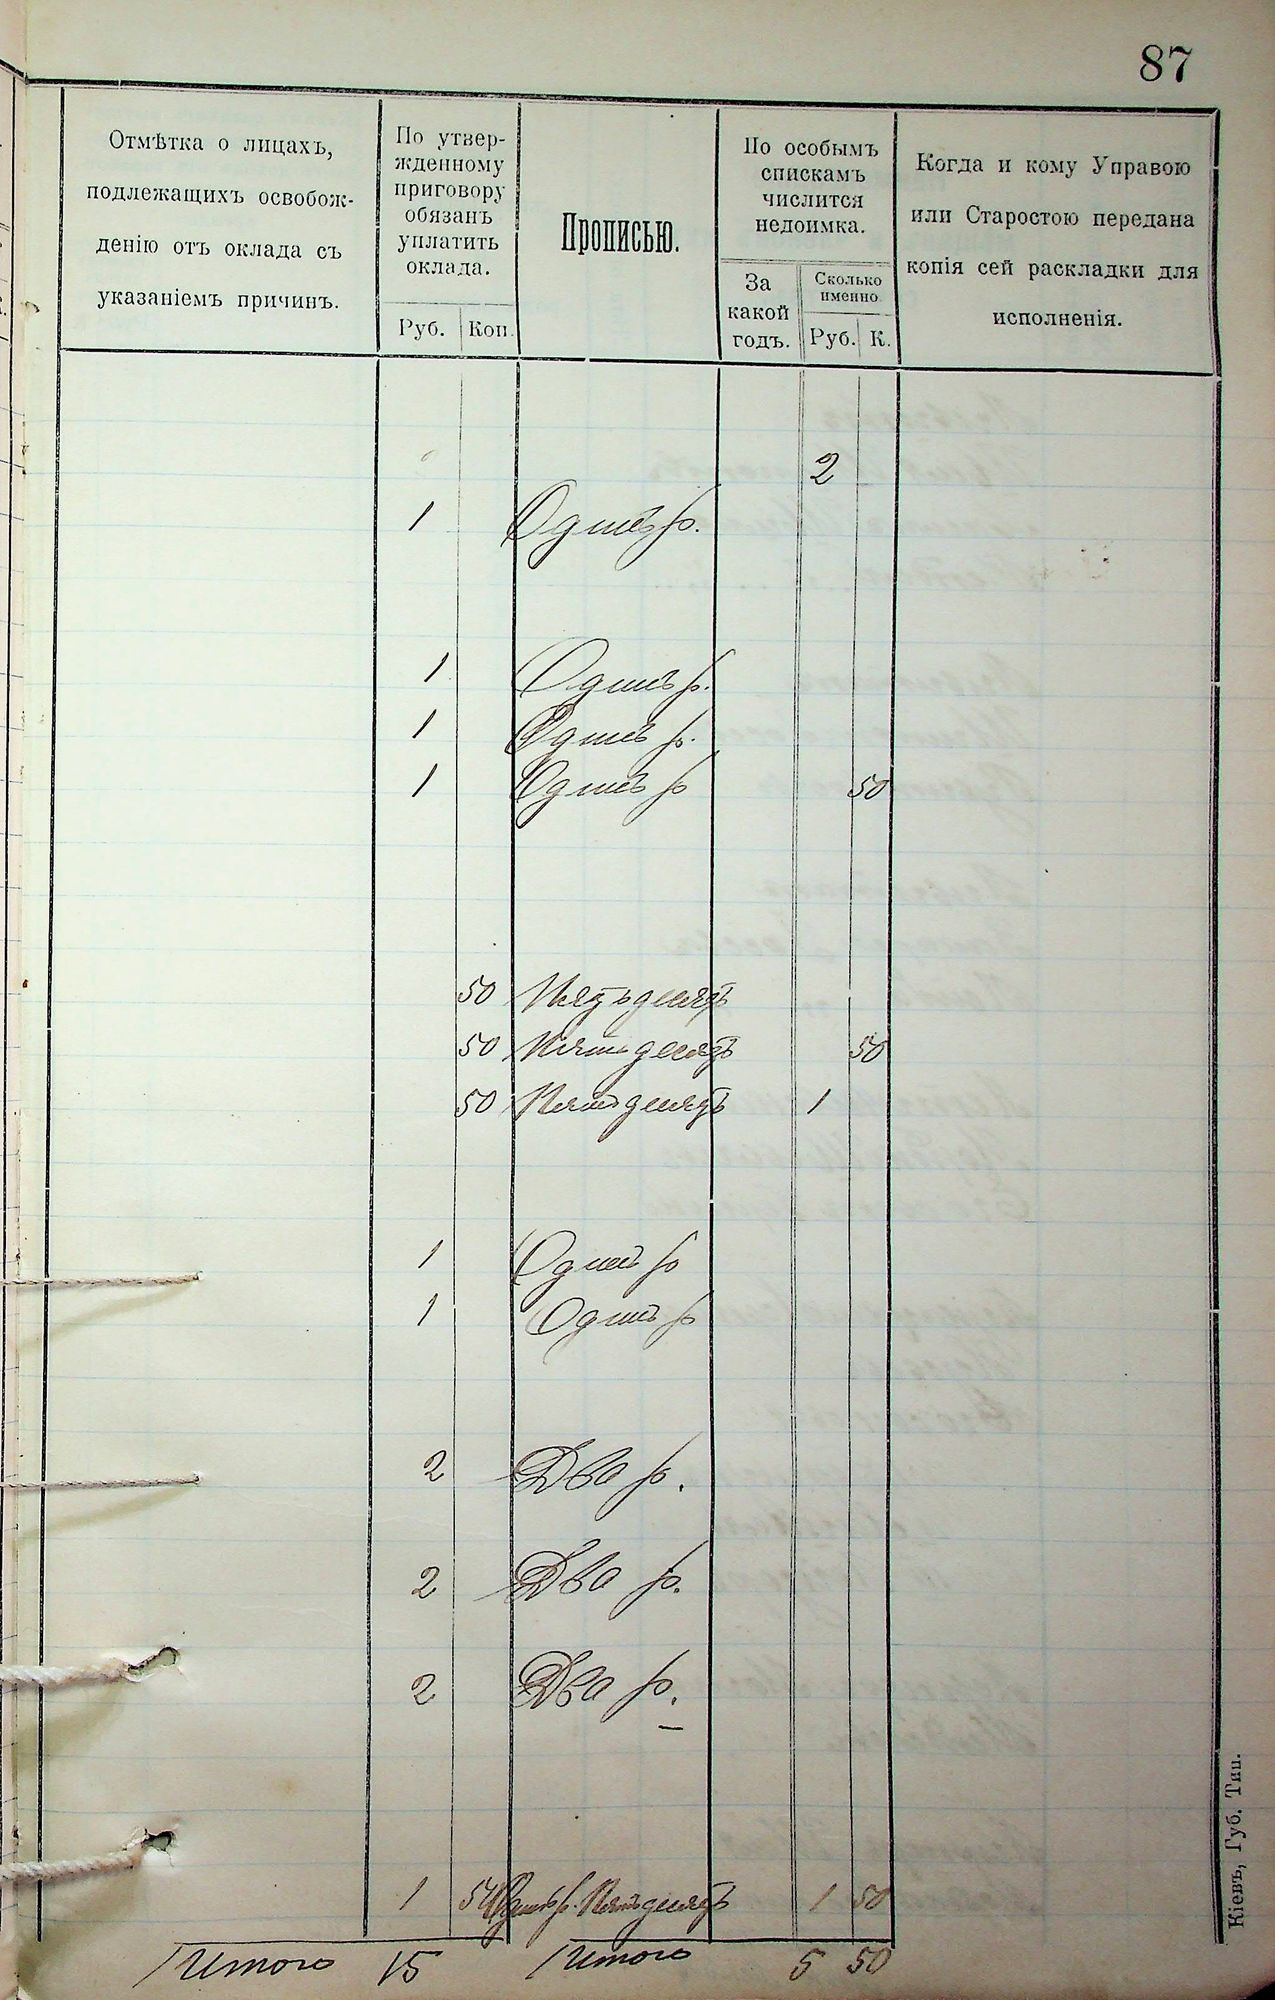 87
Отмѣтка о лицахъ,
подлежащихъ освобож-
денію отъ оклада съ
указаніемъ причинъ.
По утвер-
жденному
приговору
обязанъ
уплатить
оклада.
Руб. Коп.
Прописью.
По особымъ
спискамъ
числится
недоимка.
За
какой
годъ.
Сколько
именно
Руб. К.
Когда и кому Управою
или Старостою передана
копія сей раскладки для
исполненія.
2
1 Одинъ р.
1 Одинъ р.
1 Одинъ р.
1 Одинъ р 50
50 Пятьдесятъ
50 Пятьдесятъ 50
50 Пятьдесятъ 1
1 Одинъ р
1 Одинъ р
2 Два р.
2 Два р.
2 Два р.
1 50 Одинъ р. Пятьдесятъ 1 50
Итого 15 Итого 5 50
Кіевъ, Губ. Тип.